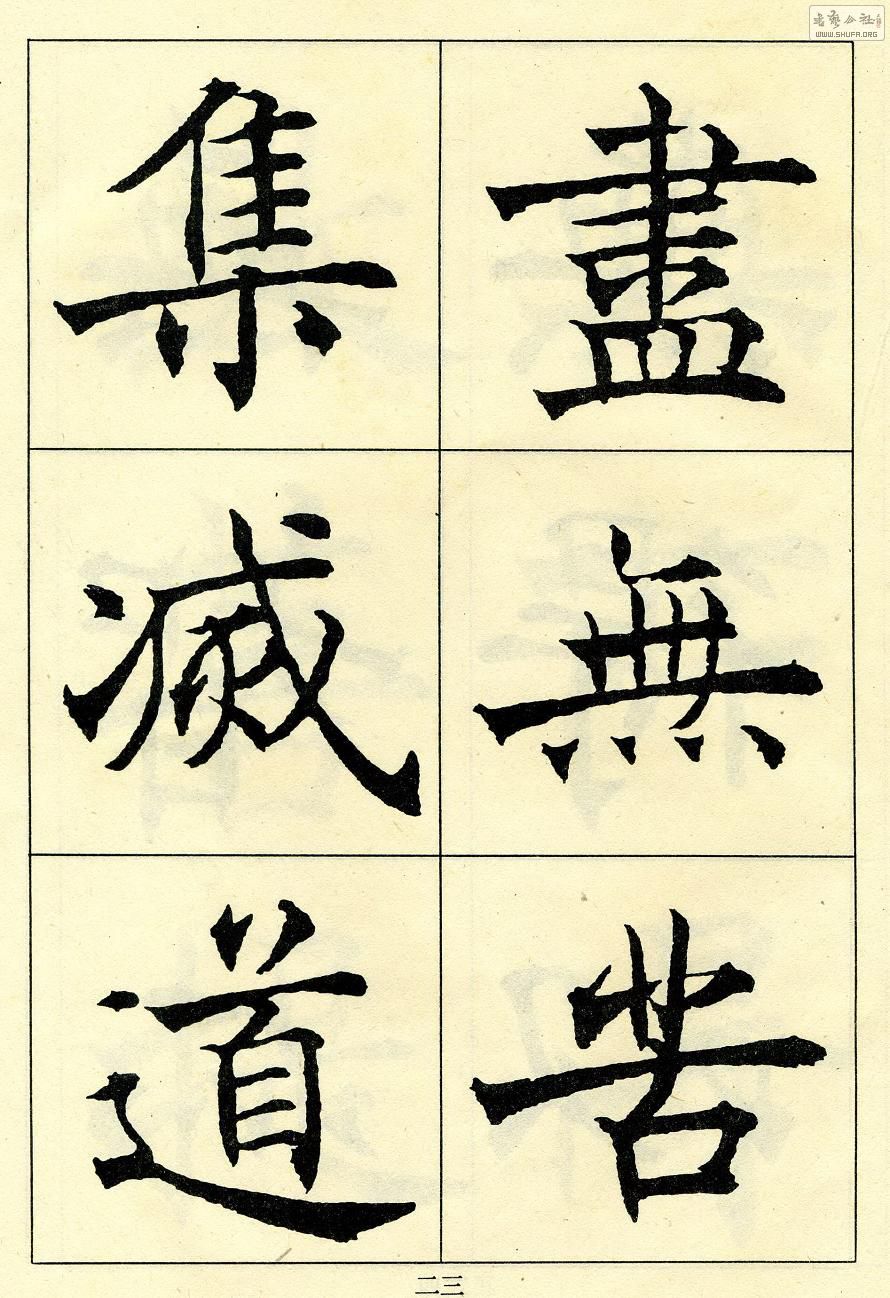 盡無苦
集滅道
二三
書藝公社
WWW.SHUFA.ORG